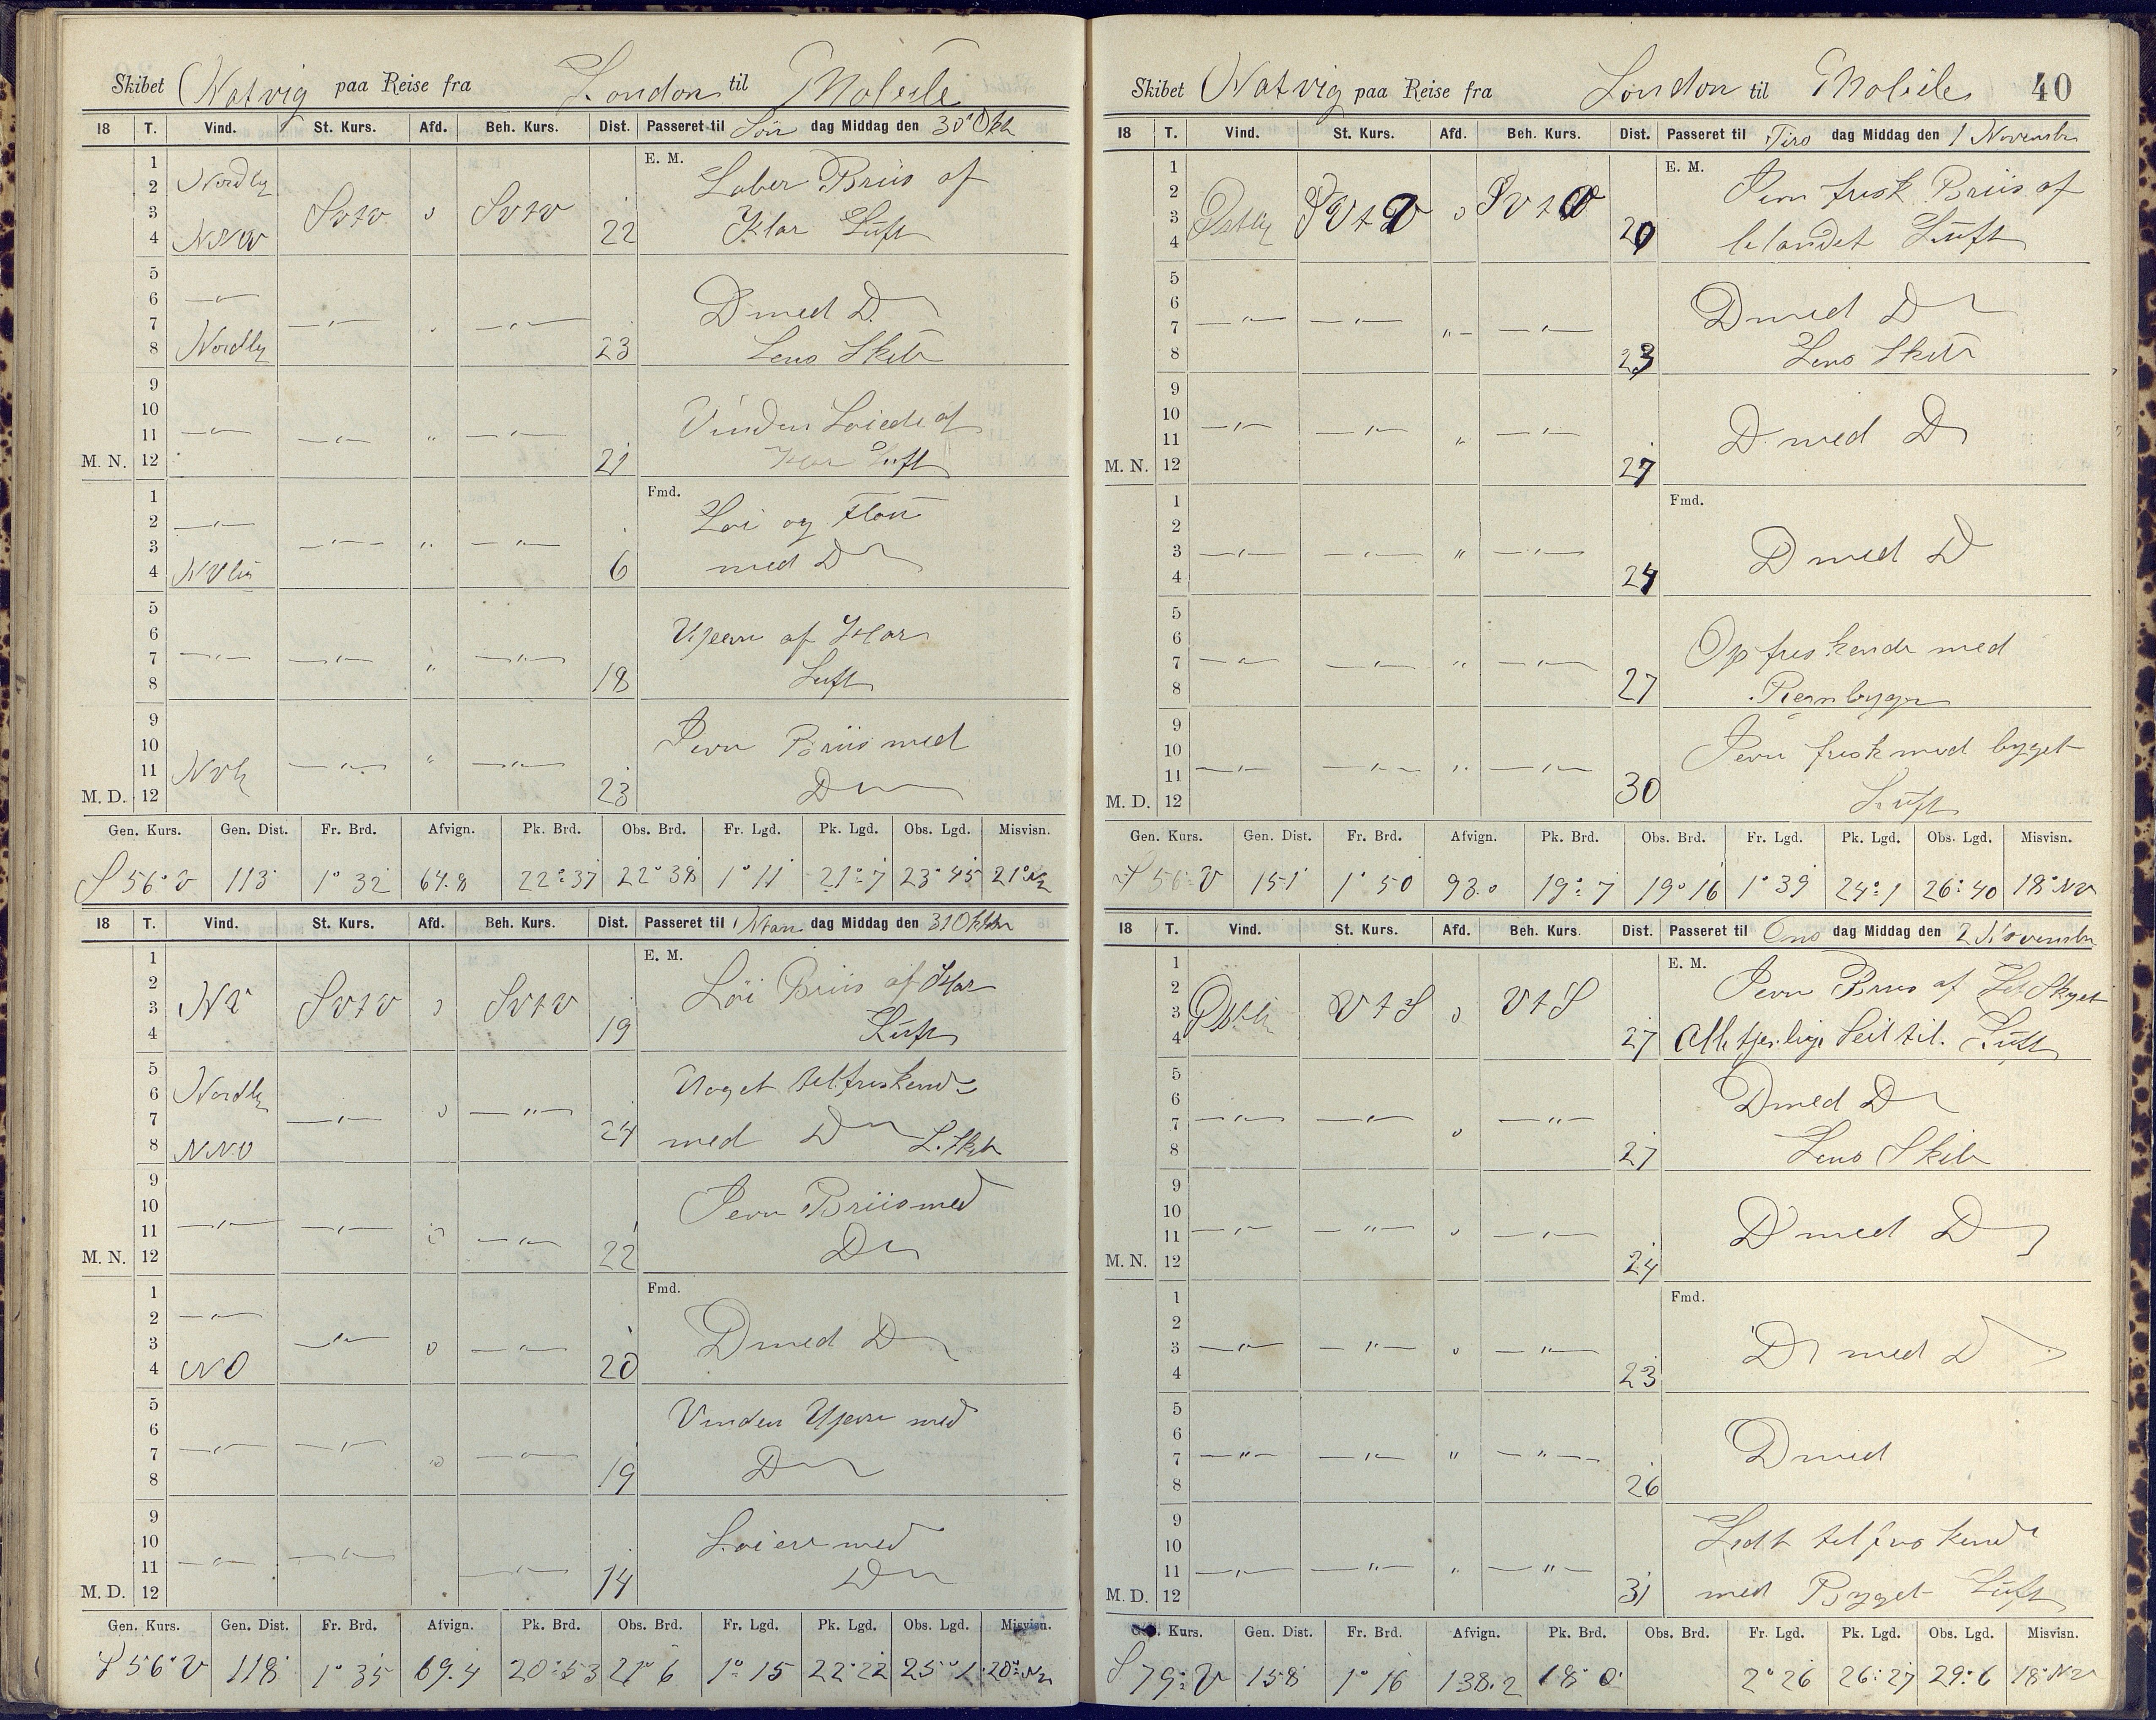 Skibet Natvig paa Reise fra London til Mobile
18 T. Vind. St. Kurs. Afd. Beh. Kurs. Dist. Passeret til Søn dag Middag den 30' Okt
1 E. M. Laber Briis af
2 Nordly
3 SvtV 0 SvtV
4 NNV 22 Klar Luft
5
6 —"— D med D
7 —"— " —"—
8 Nordly 23 Lens Skib
9
10 Vinden Løiede af
11 —"— —"— " —"—
M. N. 12 21 Klar Luft
1 Fmd. Løi og Flau
2 —"—
3 —"— " —"—
4 6 med D
5
6 Ujevn af Klar
7 —"— —"— " —"—
8 18 Luft
9
10 Jevn Briis med
11 —"— " —"—
M. D. 12 23 D
Gen. Kurs. Gen. Dist. Fr. Brd. Afvign. Pk. Brd. Obs. Brd. Fr. Lgd. Pk. Lgd. Obs. Lgd. Misvisn.
S 56° V 113 1° 32 64.8 22° 37 22° 38 1° 11 21° 7 23° 45 21° NV
18 T. Vind. St. Kurs. Afd. Beh. Kurs. Dist. Passeret til Man dag Middag den 31 Oktbr
1 E. M.
2 Løi Briis af Klar
3 NV SvtV 0 SvtV
4 19 Luft
5
6 Nordly Noget tilfriskende
7 —"— 0 —"—
8 NNO 24 med D L. Skib
9
10 Jevn Briis med
11 —"— —"— 0 —"—
M. N. 12 22 D
1 Fmd.
2 —"—
3 —"— 0 —"— D med D
4 NO 20
5
6 Vinden Ujevn med
7 —"— —"— 0 —"—
8 19 D
9
10 Løiere med
11 —"— —"— —"—
M. D. 12 14 D
Gen. Kurs. Gen. Dist. Fr. Brd. Afvign. Pk. Brd. Obs. Brd. Fr. Lgd. Pk. Lgd. Obs. Lgd. Misvisn.
S 56° V 118 1° 35 69.4 20° 53 21° 6 1° 15 22° 22 25° 1 20° NV
Skibet Natvig paa Reise fra London til Mobile 40
18 T. Vind. St. Kurs. Afd. Beh. Kurs. Dist. Passeret til Tirs dag Middag den 1 Novembr
1 E. M.
2 Jevn frisk Briis af
3 Østly SVtV 0 SVtV
4 20 blandet Luft
5
6 D med D
7 —"— —"— " —"—
8 23 Lens Skib
9
10 D med D
11 —"— —"— " —"—
M. N. 12 27
1 Fmd.
2
3 —"— —"— " —"— D med D
4 24
5
6 Opfriskende med
7 —"— —"— " —"—
8 27 Regnbyger
9
10 Jevn frisk med byget
11 —"— —"— " —"—
M. D. 12 30 Luft
Gen. Kurs. Gen. Dist. Fr. Brd. Afvign. Pk. Brd. Obs. Brd. Fr. Lgd. Pk. Lgd. Obs. Lgd. Misvisn.
S 56° V 151 1° 50 93.0 19° 7 19° 16 1° 39 24° 1 26° 40 18° NV
18 T. Vind. St. Kurs. Afd. Beh. Kurs. Dist. Passeret til Ons dag Middag den 2 Novembr
1 E. M.
2 Jevn Briis af Let Skyet
3 Østli VtS 0 VtS
4 27 Alle tjenlige Seil til. Luft
5
6 D med D
7 —"— —"— 0 —"—
8 27 Lens Skib
9
10 D med D
11 —"— —"— 0 —"—
M. N. 12 24
1 Fmd.
2
3 —"— —"— 0 —"— D med D
4 23
5
6
7 —"— —"— " —"— D med
8 26
9
10 Lidt tilfriskende
11 —"— —"— " —"—
M. D. 12 31 med Byget Luft
Kurs. Gen. Dist. Fr. Brd. Afvign. Pk. Brd. Obs. Brd. Fr. Lgd. Pk. Lgd. Obs. Lgd. Misvisn.
S 79° V 158 1° 16 138.2 18° 0 2° 26 26° 27 29° 6 18° NV